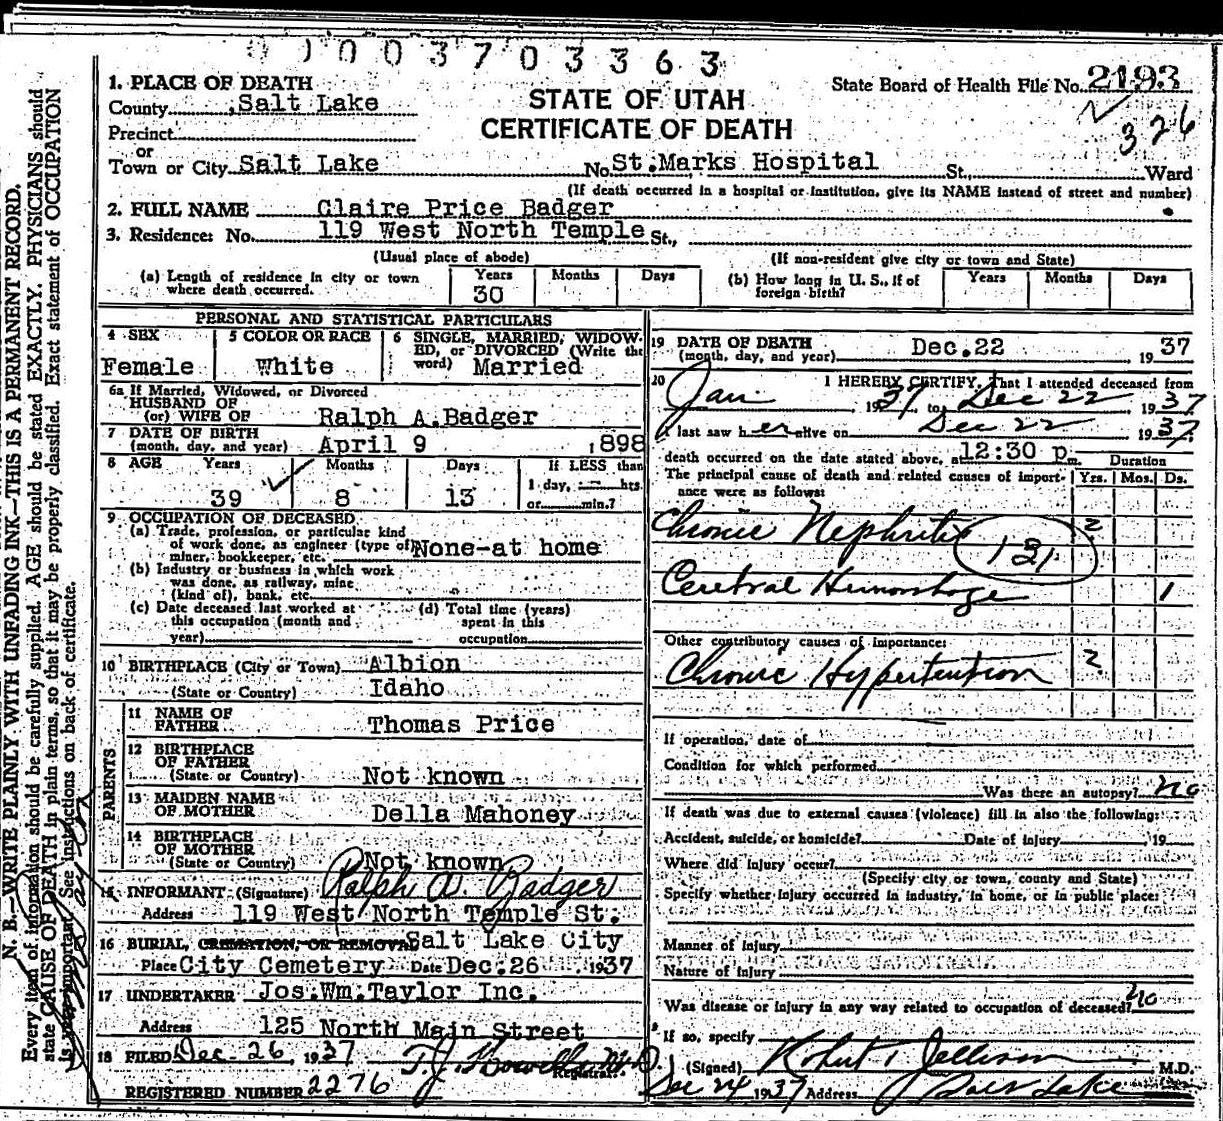 00003703363
1. PLACE OF DEATH
State Board of Health File No. 2193
County Salt Lake
STATE OF UTAH
326
Precinct
CERTIFICATE OF DEATH
or
Town or City Salt Lake No. St. Marks Hospital St., Ward
(If death occurred in a hospital or institution, give its NAME instead of street and number)
2. FULL NAME Claire Price Badger
3. Residence: No. 119 West North Temple St.,
(Usual place of abode) (If non-resident give city or town and State)
(a) Length of residence in city or town where death occurred. Years 30 Months Days
(b) How long in U. S., if of foreign birth? Years Months Days
PERSONAL AND STATISTICAL PARTICULARS
4 SEX Female
5 COLOR OR RACE White
6 SINGLE, MARRIED, WIDOW-
ED, or DIVORCED (Write the
word) Married
6a If Married, Widowed, or Divorced
HUSBAND OF
(or) WIFE OF Ralph A. Badger
7 DATE OF BIRTH
(month, day, and year) April 9 1898
8 AGE Years 39 Months 8 Days 13
If LESS than
1 day, hrs.
or min.?
9 OCCUPATION OF DECEASED
(a) Trade, profession, or particular kind
of work done, as engineer (type of
miner, bookkeeper, etc. None-at home
(b) Industry or business in which work
was done, as railway, mine
(kind of), bank, etc.
(c) Date deceased last worked at
this occupation (month and
year)
(d) Total time (years)
spent in this
occupation
10 BIRTHPLACE (City or Town) Albion
(State or Country) Idaho
PARENTS
11 NAME OF
FATHER Thomas Price
12 BIRTHPLACE
OF FATHER
(State or Country) Not known
13 MAIDEN NAME
OF MOTHER Della Mahoney
14 BIRTHPLACE
OF MOTHER
(State or Country) Not known
15 INFORMANT (Signature) Ralph A. Badger
Address 119 West North Temple St.
16 BURIAL, CREMATION, OR REMOVAL Salt Lake City
Place City Cemetery Date Dec. 26 1937
17 UNDERTAKER Jos. Wm. Taylor Inc.
Address 125 North Main Street
18 FILED Dec - 26, 1937 M.D.
Registrar.
REGISTERED NUMBER 2276
19 DATE OF DEATH
(month, day, and year) Dec. 22 1937
20 I HEREBY CERTIFY, That I attended deceased from
Jan 1937 to Dec 22 1937
I last saw her alive on Dec 22 1937
death occurred on the date stated above, at 12:30 p m. Duration
The principal cause of death and related causes of import-
ance were as follows: Yrs. Mos. Ds.
Chronic Nephritis 2
131
Cerebral Hemorrhage 1
Other contributory causes of importance:
Chronic Hypertention 2
If operation, date of
Condition for which performed
Was there an autopsy? no
If death was due to external causes (violence) fill in also the following:
Accident, suicide, or homicide? Date of injury 19
Where did injury occur?
(Specify city or town, county and State)
Specify whether injury occurred in industry, in home, or in public place:
Manner of injury
Nature of injury
Was disease or injury in any way related to occupation of deceased? no
If so, specify
(Signed) Robert T Jellison M.D.
Dec 24 1937 Address Salt Lake
N. B.—WRITE PLAINLY WITH UNFADING INK—THIS IS A PERMANENT RECORD.
Every item of information should be carefully supplied. AGE should be stated EXACTLY. PHYSICIANS should
state CAUSE OF DEATH in plain terms, so that it may be properly classified. Exact statement of OCCUPATION
is very important. See instructions on back of certificate.